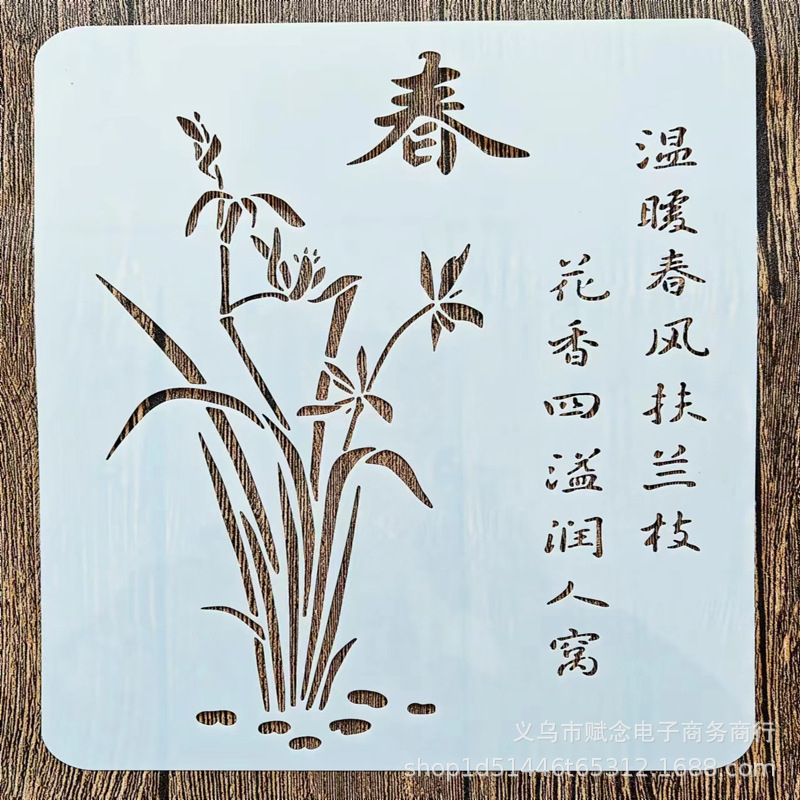 春
温暖春风扶兰枝
花香四溢润人窝
义乌市赋念电子商务商行
shop1d51446t65312.1688.com